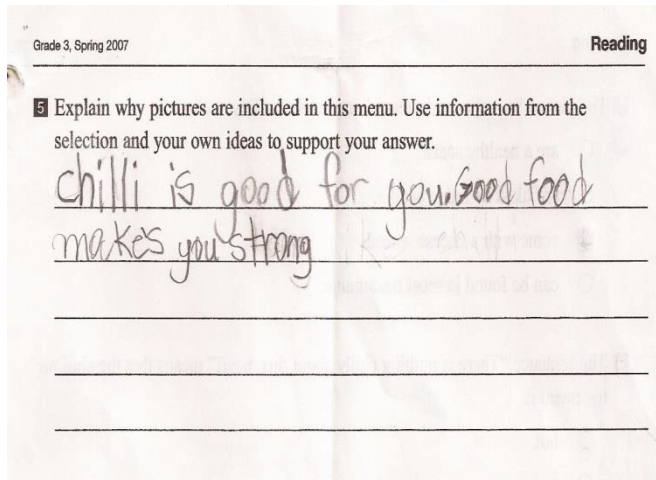 Grade 3, Spring 2007
Reading
5 Explain why pictures are included in this menu. Use information from the
selection and your own ideas to support your answer.
chilli is good for you. Good food
makes you strong